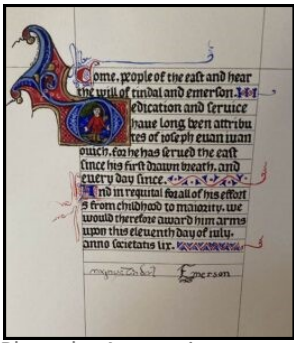 Come, people of the east and hear
the will of tindal and emerson.
Dedication and service
have long been attribu
tes of joseph euan ivan
ovich, for he has served the east
since his first drawn breath, and
every day since.
And in requital for all of his effort
s from childhood to majority, we
would therefore award him arms
upon this eleventh day of july,
anno societatis lix.
Emerson